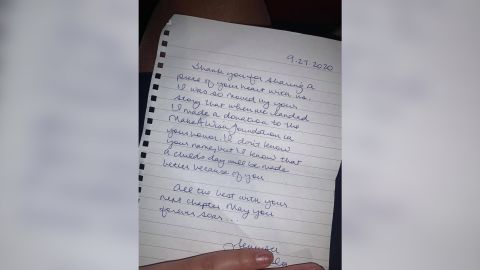 9.27.2020
Thank you for sharing a
piece of your heart with us.
I was so moved by your
story that when we landed
I made a donation to the
Make A Wish foundation in
your honor. I don't know
your name, but I know that
a child's day will be made
better because of you
All the best with your
next chapter. May you
forever soar...
Jennifer